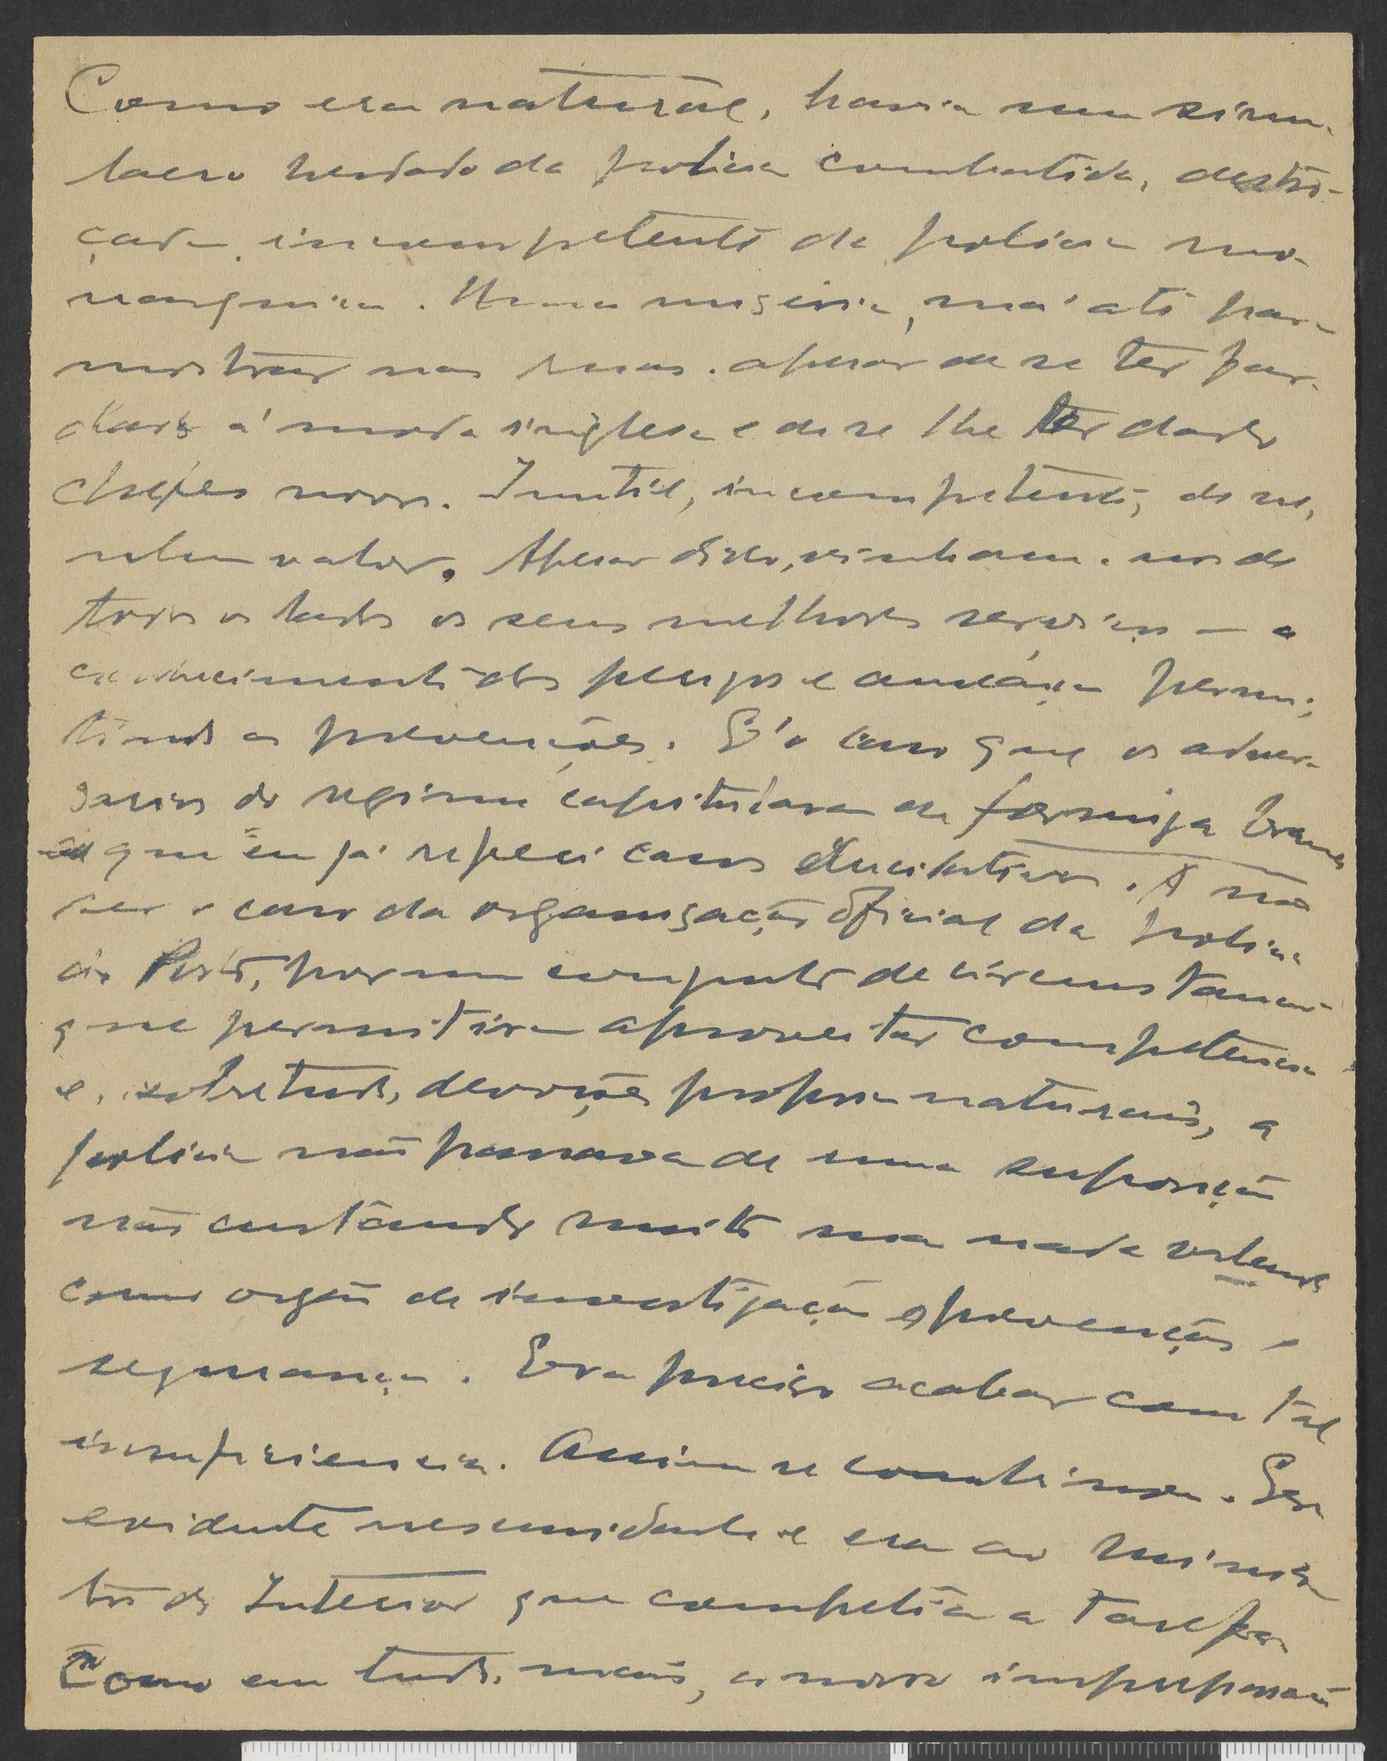 Como era natural, havia um simu-
lacro herdado da policia combatida, destro-
çada, incompetente da policia mo-
narquica. Uma miseria, má até para
mostrar nas ruas. apesar de se ter far-
dado á moda inglesa e de se lhe ter dado
chefes novos. Inutil, incompetente, de ne-
nhum valor. Apesar disso, vinham-nos de
todos os lados os seus melhores serviços — o
conhecimento dos perigos e ameaças permi-
tindo as prevenções. E' o caso que os adver-
sarios do regimen capitularam de formiga branca
e que eu já referi casos elucidativos. A não
ser o caso da organização oficial da policia
do Porto, por um conjunto de circunstancias
que permitiram aproveitar competencias
e, sobretudo, devoções naturais, a
policia não passava de uma suposição
não custando muito mas nada valendo
como orgão de investigação e prevenção e
segurança. Era preciso acabar com tal
insuficiencia. Assim se continua. Era
evidente necessidade e era ao minis-
tro do Interior que competia a tarefa.
Como em tudo mais, a nossa